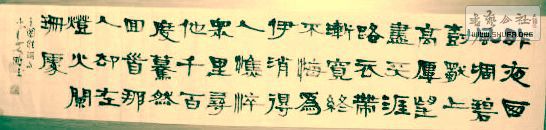 昨夜西
風凋碧
樹獨上
高樓望
盡天涯
路衣帶
漸寬終
不悔為
伊消得
人憔悴
眾里尋
他千百
度驀然
回首那
人却在
燈火闌
珊處
书艺公社